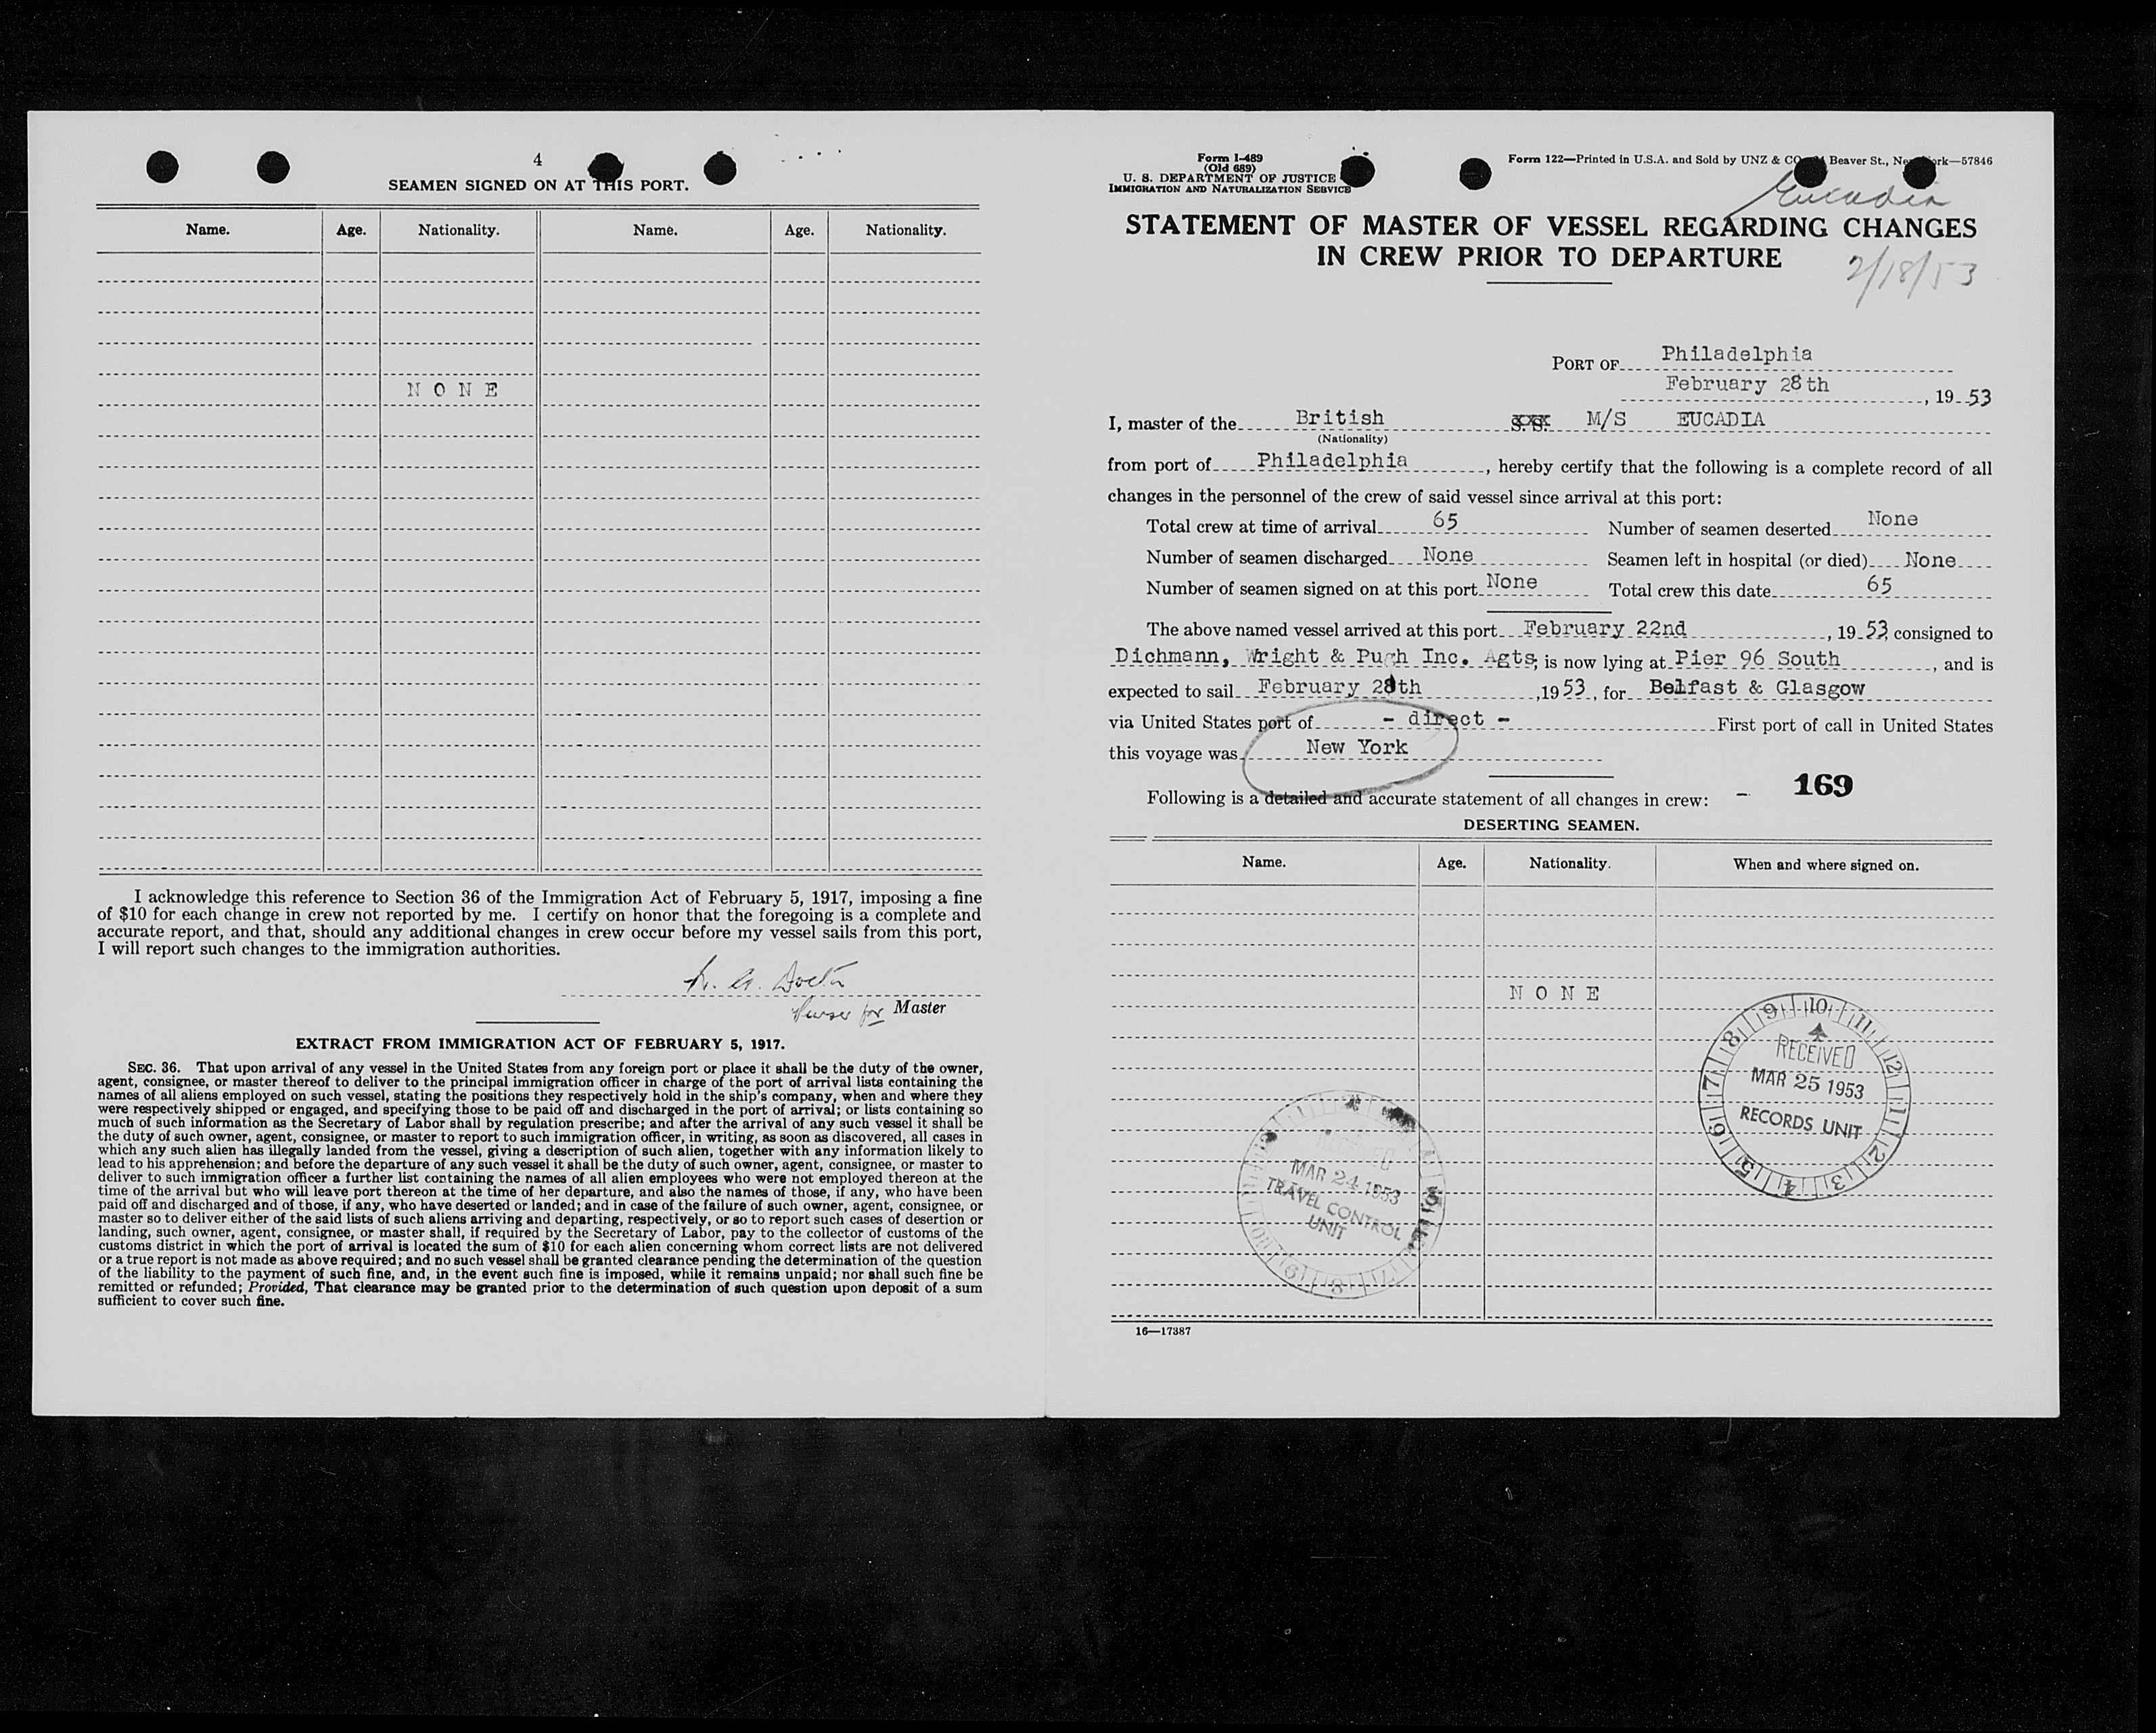 4
SEAMEN SIGNED ON AT THIS PORT.
Name. Age. Nationality. Name. Age. Nationality.
N O N E
I acknowledge this reference to Section 36 of the Immigration Act of February 5, 1917, imposing a fine
of $10 for each change in crew not reported by me. I certify on honor that the foregoing is a complete and
accurate report, and that, should any additional changes in crew occur before my vessel sails from this port,
I will report such changes to the immigration authorities.
Purser for Master
EXTRACT FROM IMMIGRATION ACT OF FEBRUARY 5, 1917.
SEC. 36. That upon arrival of any vessel in the United States from any foreign port or place it shall be the duty of the owner,
agent, consignee, or master thereof to deliver to the principal immigration officer in charge of the port of arrival lists containing the
names of all aliens employed on such vessel, stating the positions they respectively hold in the ship's company, when and where they
were respectively shipped or engaged, and specifying those to be paid off and discharged in the port of arrival; or lists containing so
much of such information as the Secretary of Labor shall by regulation prescribe; and after the arrival of any such vessel it shall be
the duty of such owner, agent, consignee, or master to report to such immigration officer, in writing, as soon as discovered, all cases in
which any such alien has illegally landed from the vessel, giving a description of such alien, together with any information likely to
lead to his apprehension; and before the departure of any such vessel it shall be the duty of such owner, agent, consignee, or master to
deliver to such immigration officer a further list containing the names of all alien employees who were not employed thereon at the
time of the arrival but who will leave port thereon at the time of her departure, and also the names of those, if any, who have been
paid off and discharged and of those, if any, who have deserted or landed; and in case of the failure of such owner, agent, consignee, or
master so to deliver either of the said lists of such aliens arriving and departing, respectively, or so to report such cases of desertion or
landing, such owner, agent, consignee, or master shall, if required by the Secretary of Labor, pay to the collector of customs of the
customs district in which the port of arrival is located the sum of $10 for each alien concerning whom correct lists are not delivered
or a true report is not made as above required; and no such vessel shall be granted clearance pending the determination of the question
of the liability to the payment of such fine, and, in the event such fine is imposed, while it remains unpaid; nor shall such fine be
remitted or refunded; Provided, That clearance may be granted prior to the determination of such question upon deposit of a sum
sufficient to cover such fine.
Form I-489
(Old 689)
U. S. DEPARTMENT OF JUSTICE
IMMIGRATION AND NATURALIZATION SERVICE
Form 122—Printed in U.S.A. and Sold by UNZ & CO Beaver St., New York—57846
Eucadia
STATEMENT OF MASTER OF VESSEL REGARDING CHANGES
IN CREW PRIOR TO DEPARTURE
2/18/53
PORT OF Philadelphia
February 28th, 1953
I, master of the British S. S. M/S EUCADIA
(Nationality)
from port of Philadelphia, hereby certify that the following is a complete record of all
changes in the personnel of the crew of said vessel since arrival at this port:
Total crew at time of arrival 65 Number of seamen deserted None
Number of seamen discharged None Seamen left in hospital (or died) None
Number of seamen signed on at this port None Total crew this date 65
The above named vessel arrived at this port February 22nd, 1953, consigned to
Dichmann, Wright & Pugh Inc. Agts; is now lying at Pier 96 South, and is
expected to sail February 28th, 1953, for Belfast & Glasgow
via United States port of - direct - First port of call in United States
this voyage was New York
169
Following is a detailed and accurate statement of all changes in crew: -
DESERTING SEAMEN.
Name. Age. Nationality. When and where signed on.
N O N E
9 10 11 12 1 2 3 4 5 6 7 8
RECEIVED
MAR 25 1953
RECORDS UNIT
MAR 24 1953
TRAVEL CONTROL
UNIT
16—17387